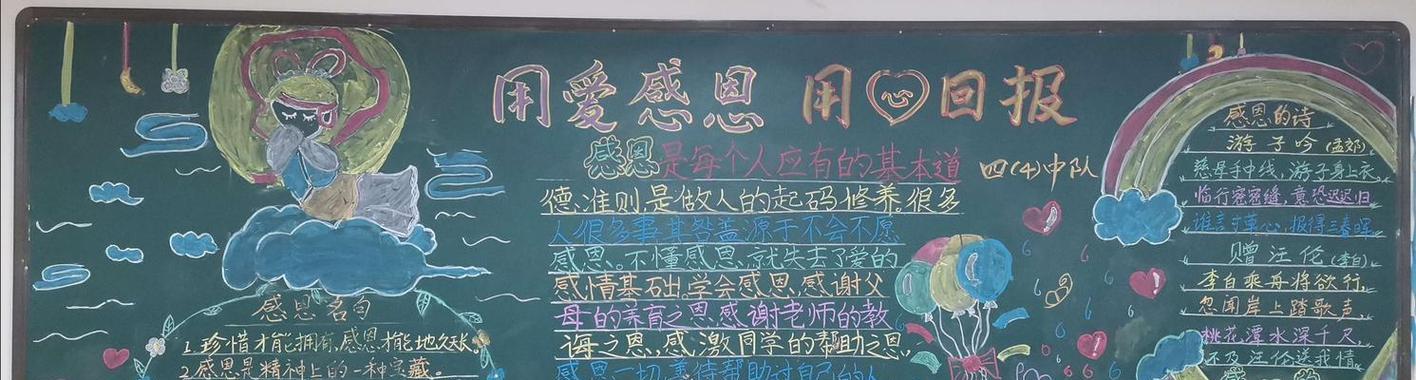 用爱感恩 用心回报
四(4)中队
感恩是每个人应有的基本道
德准则,是做人的起码修养。很多
人很多事,其咎盖源于不会不愿
感恩。不懂感恩,就失去了爱的
感情基础。学会感恩,感谢父
母的养育之恩,感谢老师的教
诲之恩,感激同学的帮助之恩,
感恩一切善待帮助过自己的人
感恩名句
1.珍惜才能拥有,感恩才能地久天长。
2.感恩是精神上的一种宝藏。
感恩的诗
游子吟(孟郊)
慈母手中线,游子身上衣。
临行密密缝,意恐迟迟归
谁言寸草心,报得三春晖
赠汪伦(李白)
李白乘舟将欲行,
忽闻岸上踏歌声。
桃花潭水深千尺,
不及汪伦送我情。